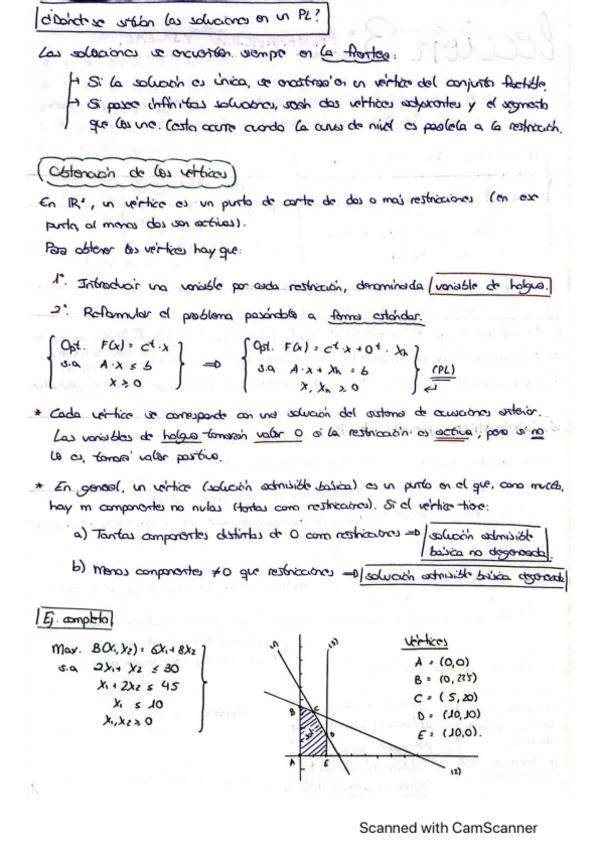 ¿Dónde se sitúan las soluciones en un PL?
Las soluciones se encuentran siempre en la frontera:
→ Si la solución es única, se encontrará en un vértice del conjunto factible.
→ Si posee infinitas soluciones, serán dos vértices adyacentes y el segmento
que los une. (esto ocurre cuando la curva de nivel es paralela a la restricción.
Obtención de los vértices
En ℝ², un vértice es un punto de corte de dos o más restricciones (en ese
punto, al menos dos son activas).
Para obtener los vértices hay que:
1º. Introducir una variable por cada restricción, denominada variable de holgura.
2º. Reformular el problema pasándolo a forma estándar.
Opt. F(x) = cᵗ·x ⇒ Opt. F(x) = cᵗ·x + 0ᵗ·xₕ
s.a A·x ≤ b s.a A·x + xₕ = b (PL)
x ≥ 0 x, xₕ ≥ 0
* Cada vértice se corresponde con una solución del sistema de ecuaciones anterior.
Las variables de holgura tomarán valor 0 si la restricción es activa, pero si no
lo es, tomará valor positivo.
* En general, un vértice (solución admisible básica) es un punto en el que, como mucho,
hay m componentes no nulas (tantas como restricciones). Si el vértice tiene:
a) Tantas componentes distintas de 0 como restricciones ⇒ solución admisible
básica no degenerada.
b) Menos componentes ≠0 que restricciones ⇒ solución admisible básica degenerada
Ej. completo
Max. B(x₁, x₂) = 6x₁ + 8x₂
s.a 2x₁ + x₂ ≤ 30
x₁ + 2x₂ ≤ 45
x₁ ≤ 10
x₁, x₂ ≥ 0
(3)
B
C
D
A
E
(2)
Vértices
A = (0,0)
B = (0, 22'5)
C = (5, 20)
D = (10, 10)
E = (10,0).
Scanned with CamScanner